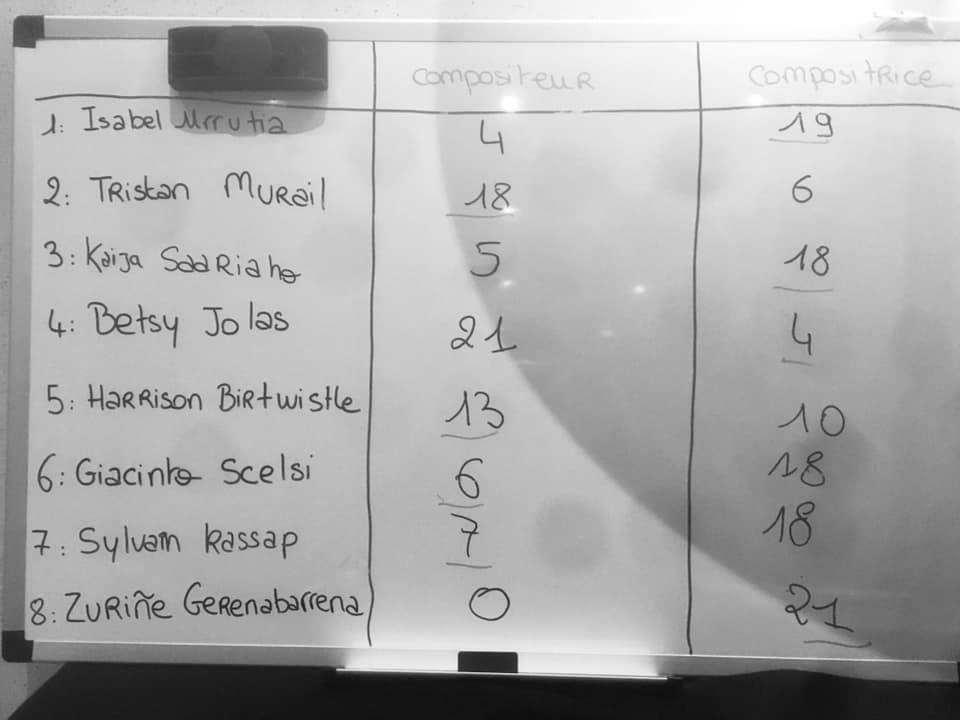 compositeur compositrice
1: Isabel Urrutia 4 19
2: Tristan Murail 18 6
3: Kaija Saariaho 5 18
4: Betsy Jolas 21 4
5: Harrison Birtwistle 13 10
6: Giacinto Scelsi 6 18
7: Sylvain Kassap 7 18
8: Zuriñe Gerenabarrena 0 21